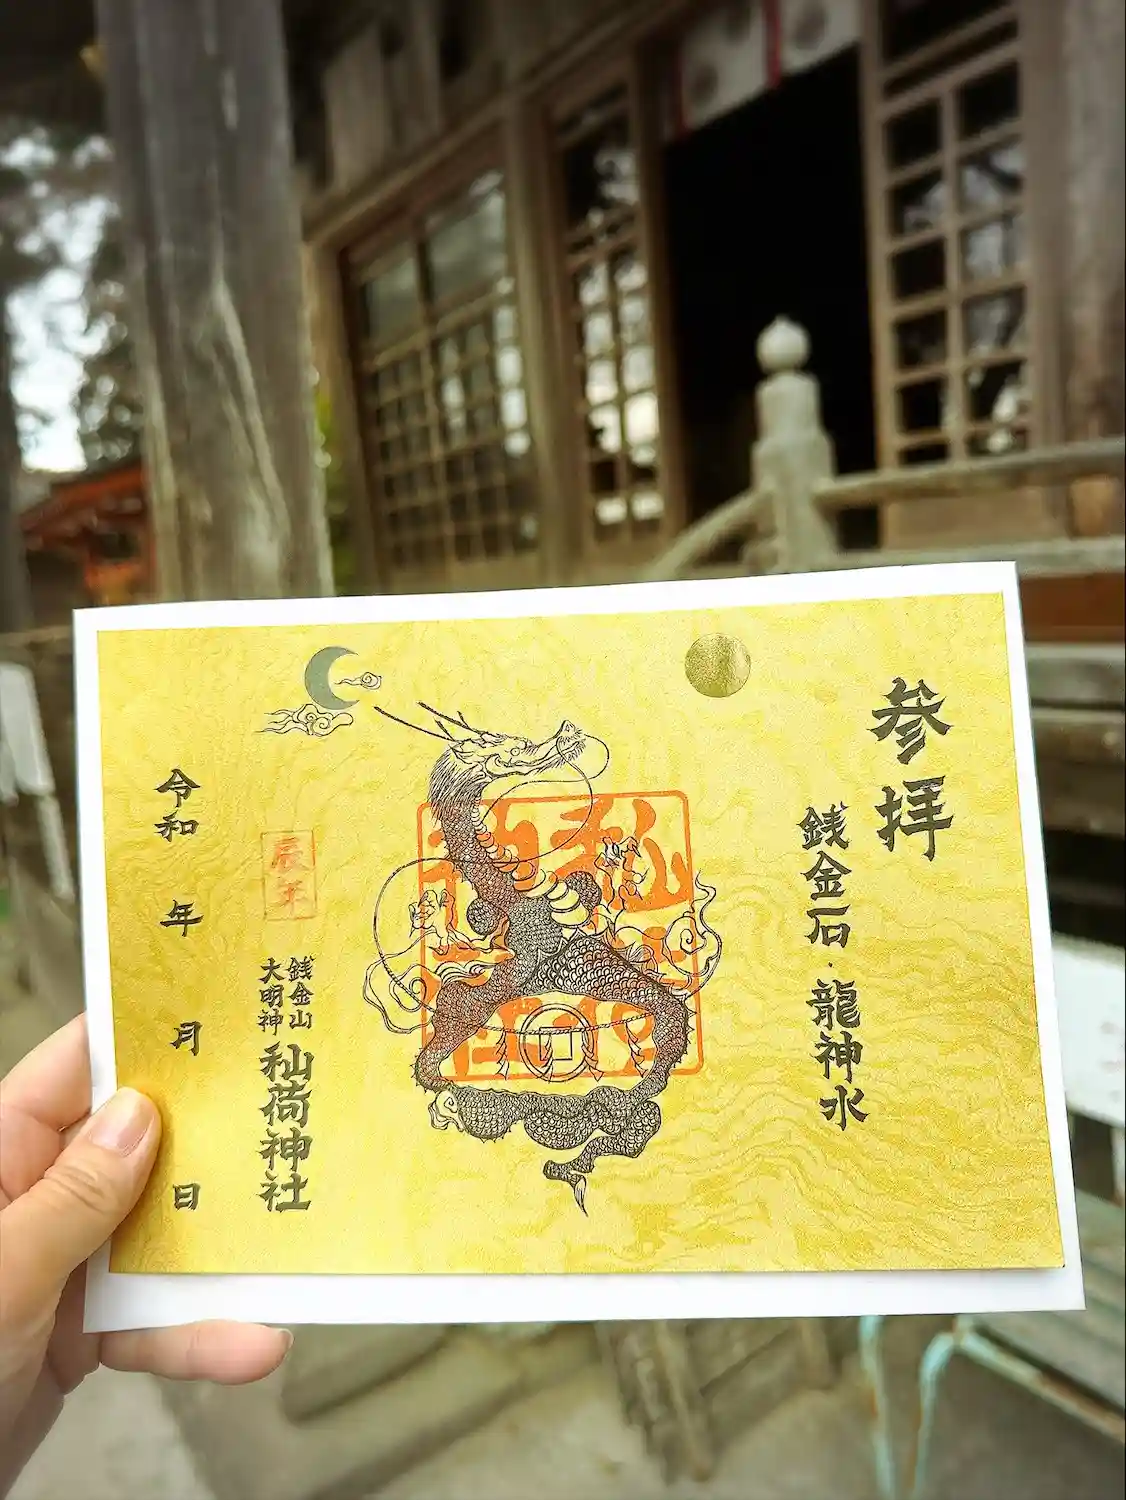 参拝
銭金石・龍神水
辰年
銭金山
大明神
秈荷神社
令和 年 月 日